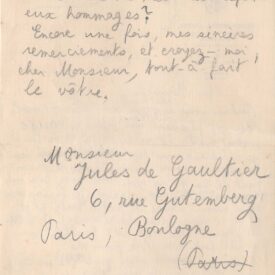 eux hommages?
Encore une fois, mes sincères
remerciements, et croyez-moi,
cher Monsieur, tout-à-fait
le vôtre.
Monsieur
Jules de Gaultier
6, rue Gutemberg
Paris, Boulogne
(Paris)